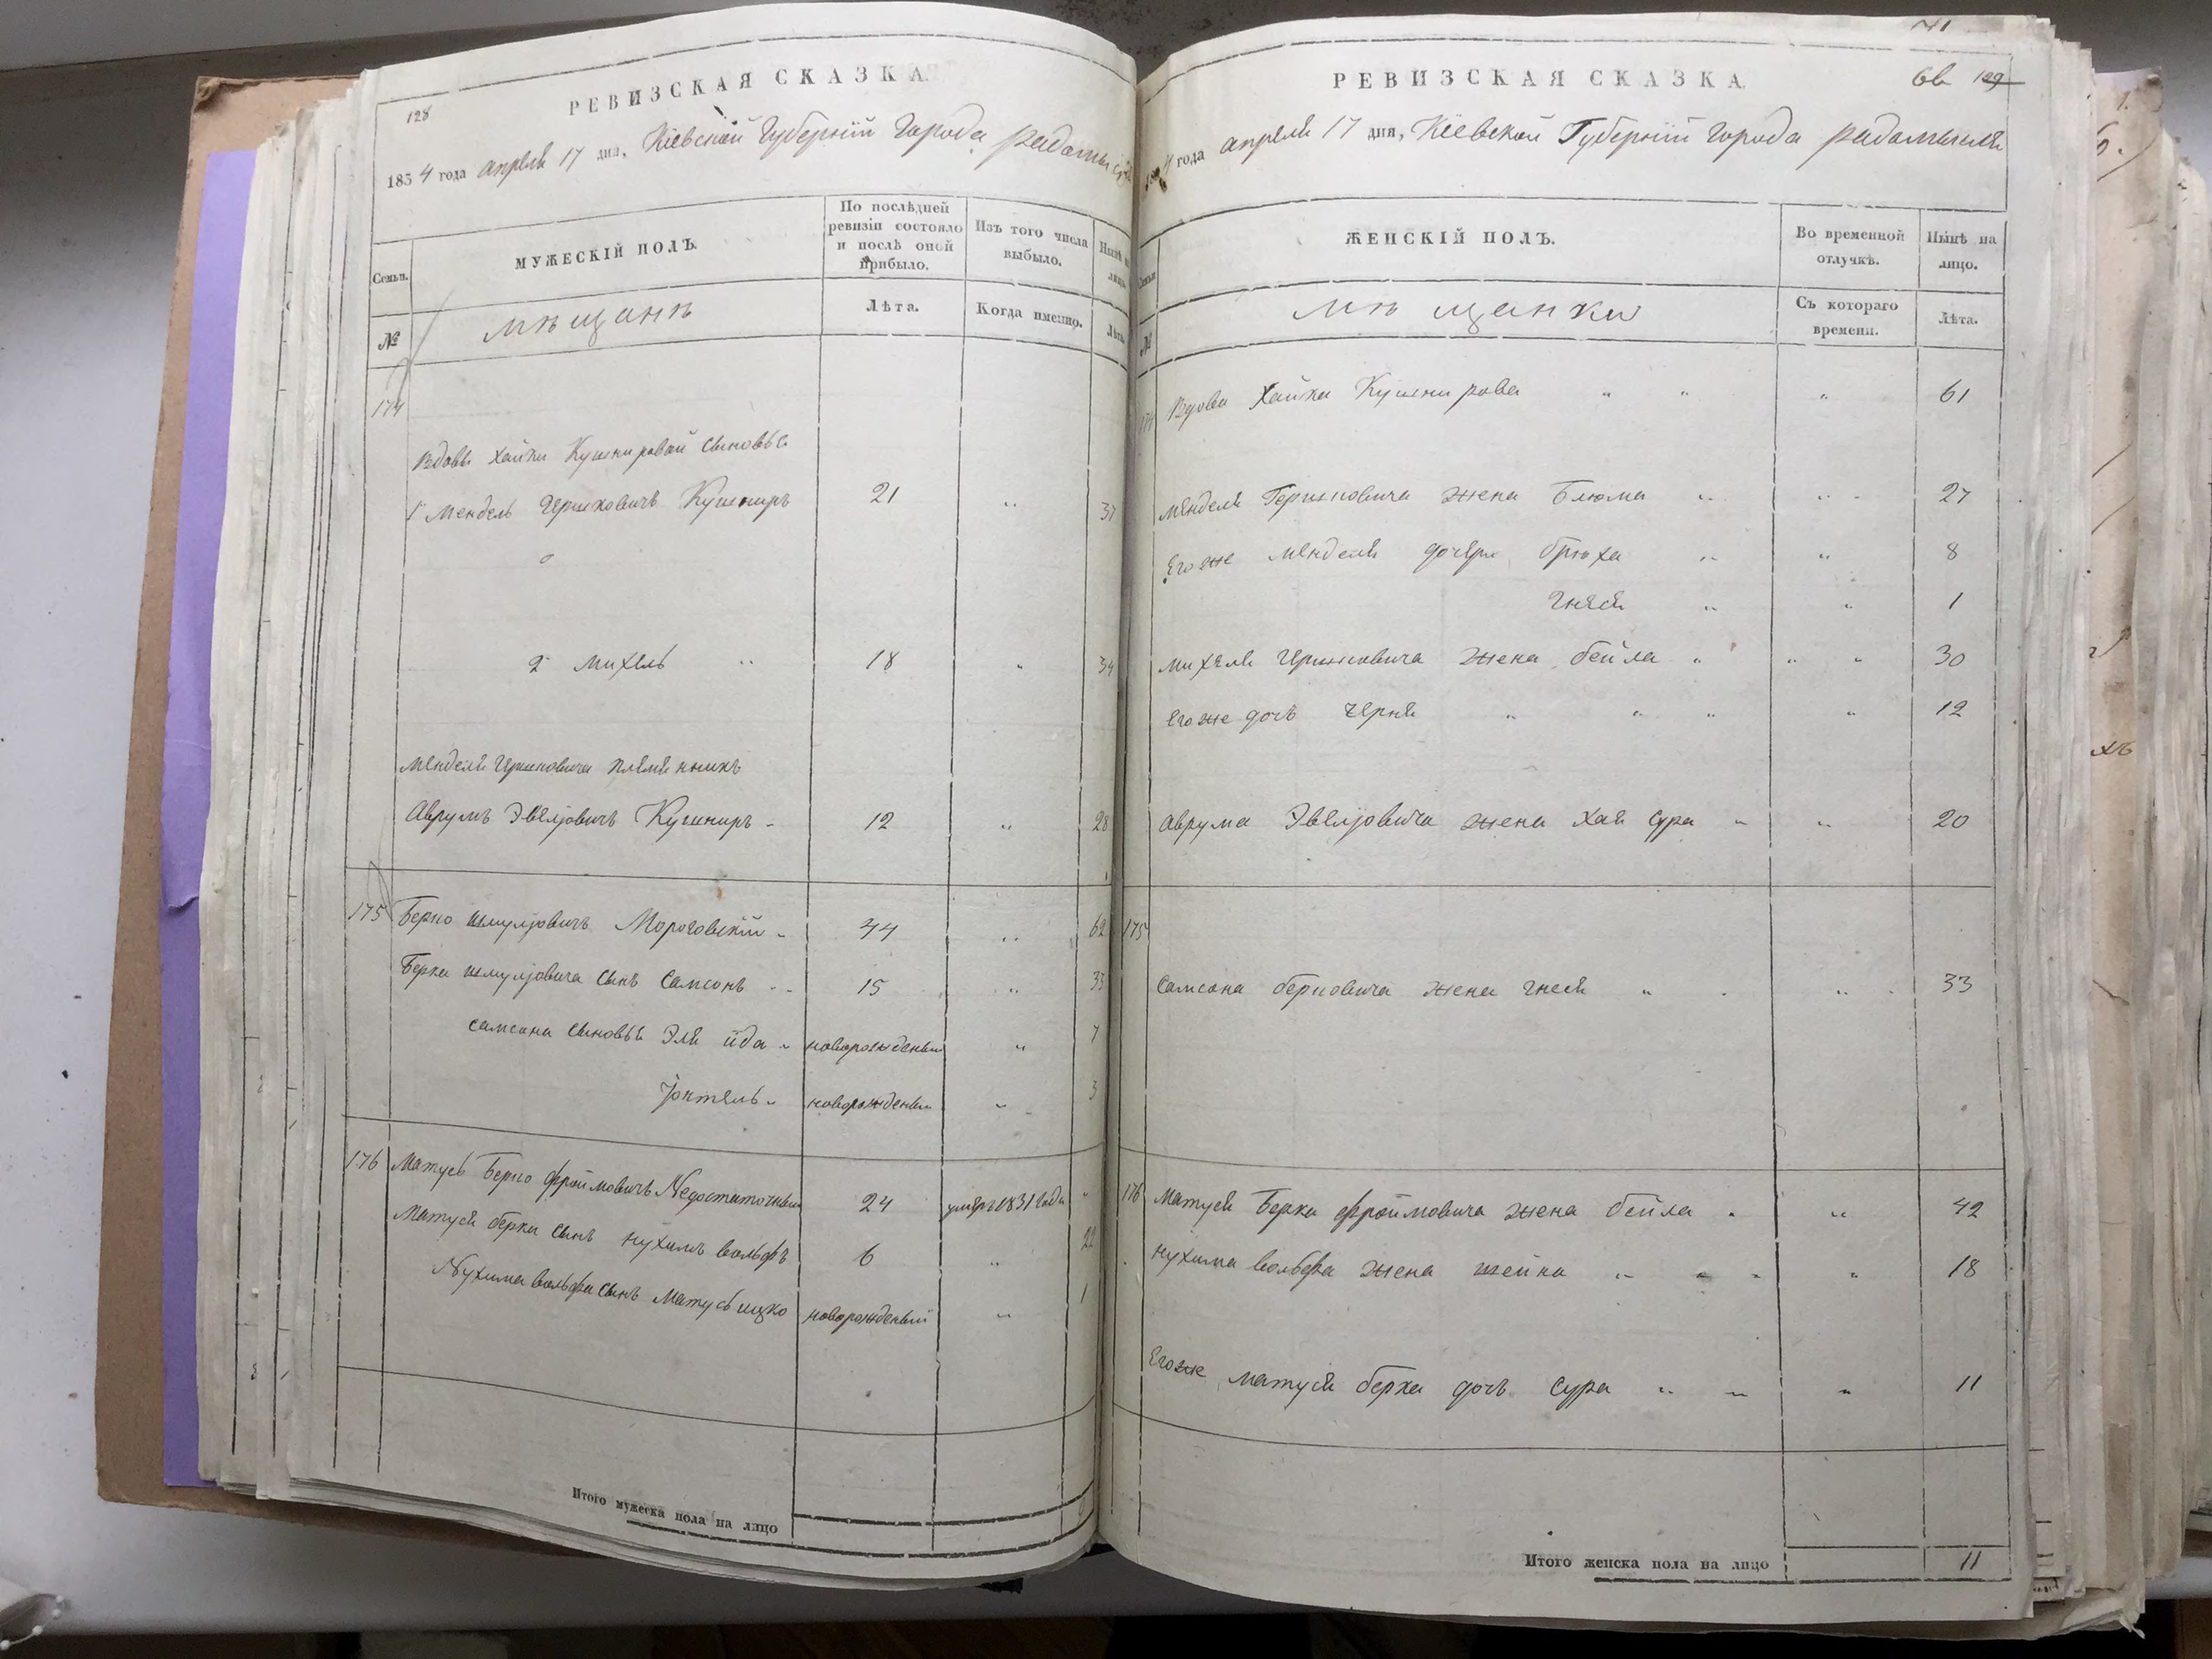 128
РЕВИЗСКАЯ СКАЗКА.
1834 года апреля 17 дня, Кіевской Губерніи Города Радомысля
Семьи.
МУЖЕСКІЙ ПОЛЪ.
По послѣдней ревизіи состояло и послѣ оной прибыло.
Изъ того числа выбыло.
Нынѣ на лицо.
№
мѣщанѣ
Лѣта.
Когда именно.
Лѣта.
174
Вдовы Хайки Кушнировой сыновья
1 Мендель Гершковичъ Кушниръ 21 " 37
2 Михель " 18 " 34
Менделя Гершковича племянникъ
Аврумъ Эвелјовичъ Кушниръ 12 " 28
175 Берко шмулјовичъ Мороговскій 44 " 62
Берка шмулјовича сынъ Самсонъ 15 " 33
Самсона сыновья Эля йда новорожденый " 7
новорожденый " 3
176 Матусь Берко фроймовичъ Недостаточный 24 умеръ 1831 года "
Матуся берка сынъ нухимъ вольфъ 6 " 22
Нухима вольфа сынъ Матусь ицко новорожденый " 1
Итого мужеска пола на лицо
РЕВИЗСКАЯ СКАЗКА.
129
4 года апреля 17 дня, Кіевской Губерніи Города Радомысля
Семьи.
ЖЕНСКІЙ ПОЛЪ.
Во временной отлучкѣ.
Нынѣ на лицо.
№
мѣщанки
Съ котораго времени.
Лѣта.
174 Вдова Хайка Кушнирова " " " 61
Менделя Гершковича жена Блюма " " 27
Его же Менделя дочери брюха " " 8
Гнеся " " 1
михеля Гершковича жена бейла " " " 30
Его же дочь черня " " " " 12
Аврума Эвелјовича жена хая сура " " 20
175
Самсона берковича жена гнеся " " 33
176 Матуся Берка фроймовича жена бейла " " 42
Нухима вольфа жена шейна " " " " 18
Его же матуся берка дочь сура " " " 11
Итого женска пола на лицо 11